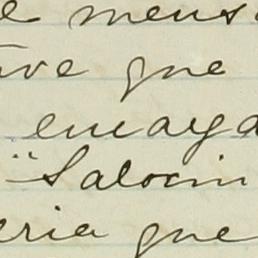 e mens
ve que
encaya
"Salocin
eria que